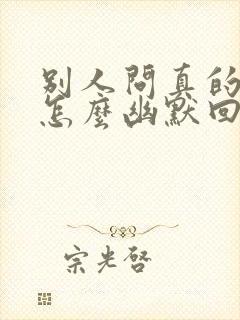 别人問真的
怎麼幽默回
宗光啓